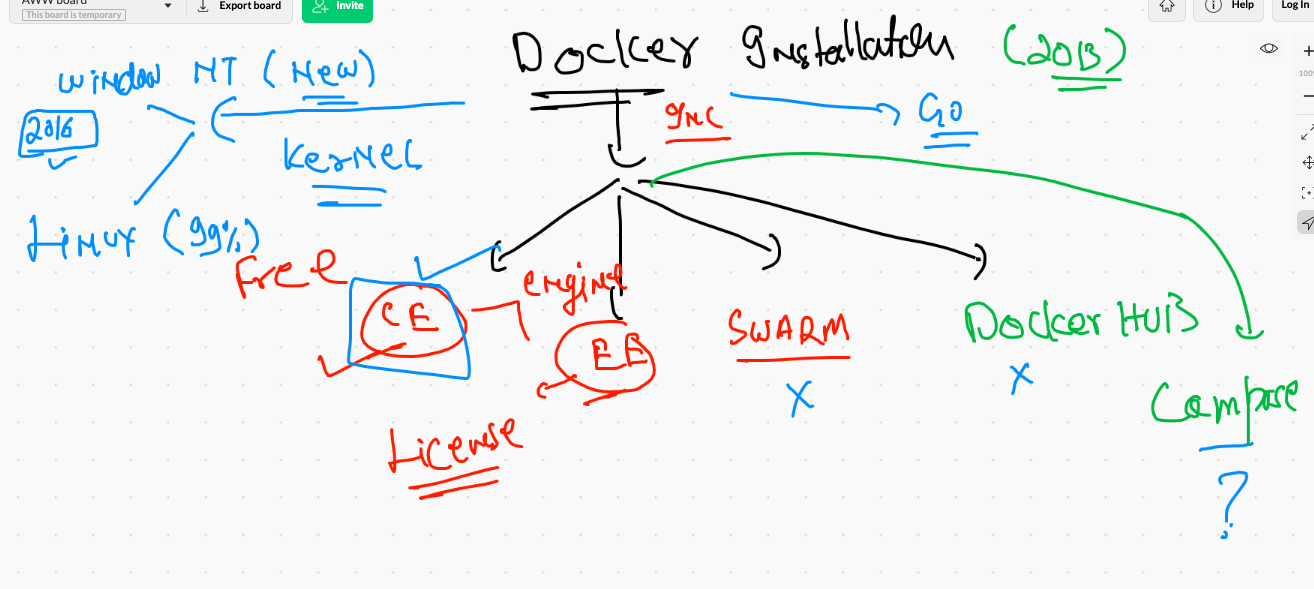 AWW board
This board is temporary
Export board
Invite
Help
Log In
Docker Installation (2013)
Window NT (New)
2016
KerNeL
INC
GO
Linux (99%)
Free
CE
engine
EE
SWARM
X
Docker HUB
X
Compose
?
License